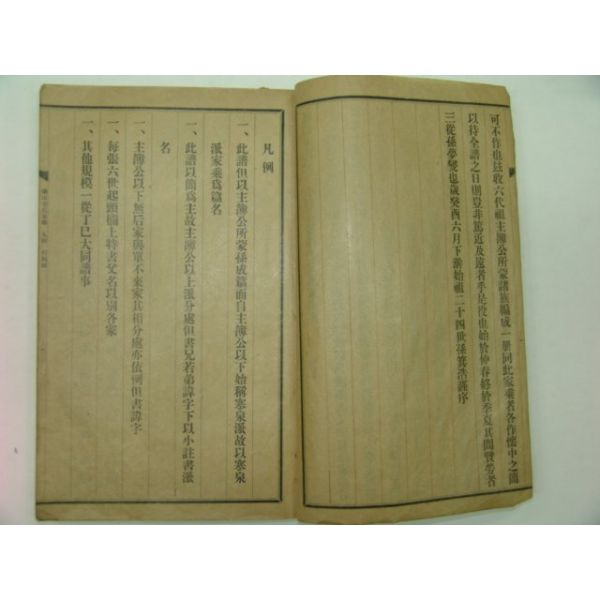 可不作也玆收六代祖主簿公所蒙諸族編成一冊同此家乘者各作懷中之簡
以待全譜之日則豈非篤近及遠者乎是役也始於仲春終於季夏其間賢勞者
三從孫夢燮也歲癸酉六月下澣始祖二十四世孫箕浩謹序
凡例
一、此譜但以主簿公所蒙孫成篇而自主簿公以下始稱寒泉派故以寒泉
派家乘爲篇名
一、此譜以簡爲主故主簿公以上派分處但書兄若弟諱字下以小註書派
名
一、主簿公以下無后家與單不來家其派分處亦依例但書諱字
一、每張六世起頭橫上特書父名以別各家
一、其他規模一從丁巳大同譜事